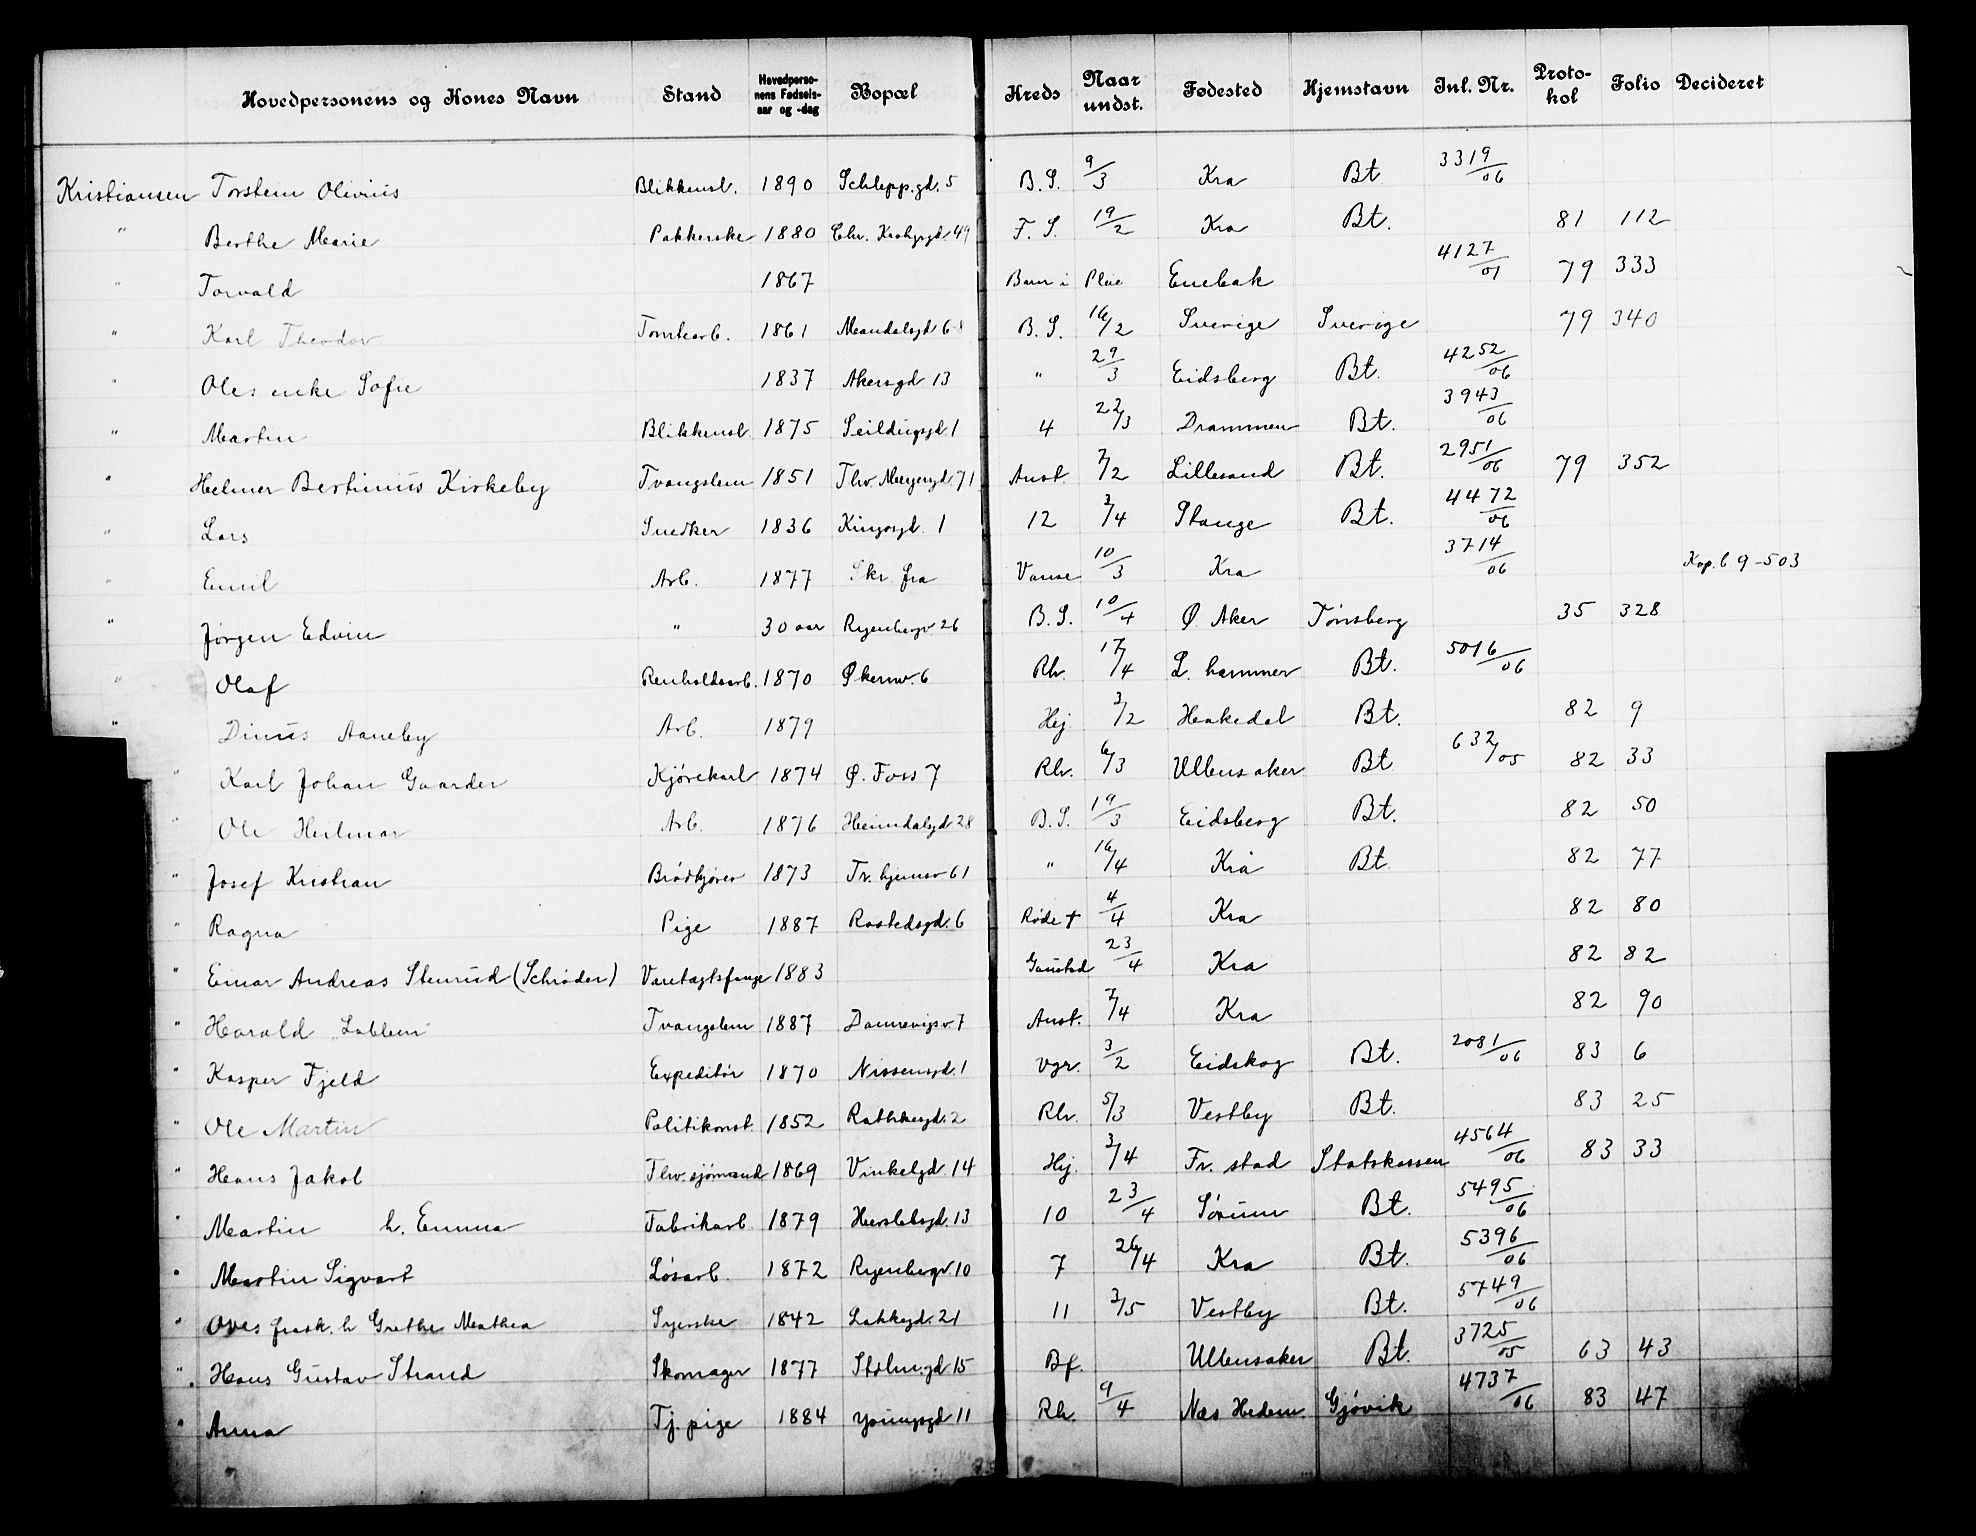 Hovedpersonens og Kones Navn Stand Hovedperso-nens Fødsels-aar og -dag Bopæl Kreds Naar undst. Fødested Hjemstavn Inl. Nr. Proto-kol Folio Decideret
Kristiansen Torstein Olivius Blikkensl. 1890 Schlepp.gd. 5 B. S. 9/3 Kra Bt. 3319/06
" Berthe Marie Pakkerske 1880 Chr. Krohgsgd 49 F. S. 19/2 Kra Bt. 81 112
" Torvald 1867 Barn i Pleie Enebak 4127/01 79 333
" Karl Theodor Tomtearb. 1861 Mandalsgd 6 B. S. 16/2 Sverige Sverige 79 340
" Oles enke Sofie 1837 Akersgd 13 " 29/3 Eidsberg Bt. 4252/06
" Martin Blikkensl. 1875 Seildugsgd. 1 4 22/3 Drammen Bt. 3943/06
" Helmer Bertinius Kirkeby Tvangslem 1851 Thv. Meyersgd. 71 Anst. 7/2 Lillesand Bt. 2951/06 79 352
" Lars Snedker 1836 Kingosgt. 1 12 3/4 Stange Bt. 4472/06
" Emil Arb. 1877 Skr. fra Vanse 10/3 Kra 3714/06 Kop. b 9-503
" Jørgen Edvin " 30 aar Ryenbergv 26 B. S. 10/4 Ø. Aker Tønsberg 35 328
" Olaf Renholdsarb. 1870 Økernv. 6 Rh. 17/4 L. hammer Bt. 5016/06
" Dinus Aaneby Arb. 1879 Hj. 3/2 Hakedal Bt. 82 9
" Karl Johan Gaarder Kjørekarl 1874 Ø. Foss 7 Rh. 6/3 Ullensaker Bt 632/05 82 33
" Ole Heilmar Arb. 1876 Heimdalsgd 28 B. S. 19/3 Eidsberg Bt. 82 50
" Josef Kristian Brødkjører 1873 Tr. hjemsv 61 " 16/4 Kra Bt. 82 77
" Ragna Pige 1887 Rostedsgd. 6 Røde + 4/4 Kra 82 80
" Einar Andreas Stenrud (Schrøder) Varetægtsfange 1883 Gaustad 23/4 Kra 82 82
" Harald "Lablem" Tvangslem 1887 Dannevigsv. 7 Anst. 7/4 Kra 82 90
" Kasper Fjeld Expeditør 1870 Nissensgd. 1 Vgr. 3/2 Eidskog Bt. 2081/06 83 6
" Ole Martin Politikonst. 1852 Rathkesgd. 2 Rh. 5/3 Vestby Bt. 83 25
" Hans Jakob Thv. sjømand 1869 Vinkelgd. 14 Hj. 3/4 Fr. stad Statskassen 4564/06 83 33
" Martin h. Emma Fabrikarb. 1879 Herslebsgd. 13 10 23/4 Sørum Bt. 5495/06
" Martin Sigvart Løsarb. 1872 Ryenbergv. 10 7 26/4 Kra Bt. 5396/06
" Oves frask. h Grethe Mathea Syerske 1842 Lakkegd. 21 11 3/5 Vestby Bt. 5749/06
" Hans Gustav Strand Skomager 1877 Stolm.gd 15 Bf. Ullensaker Bt. 3725/05 63 43
" Anna Tj. pige 1884 Youngsgd 11 Rh. 9/4 Næs Hedem. Gjøvik 4737/06 83 47